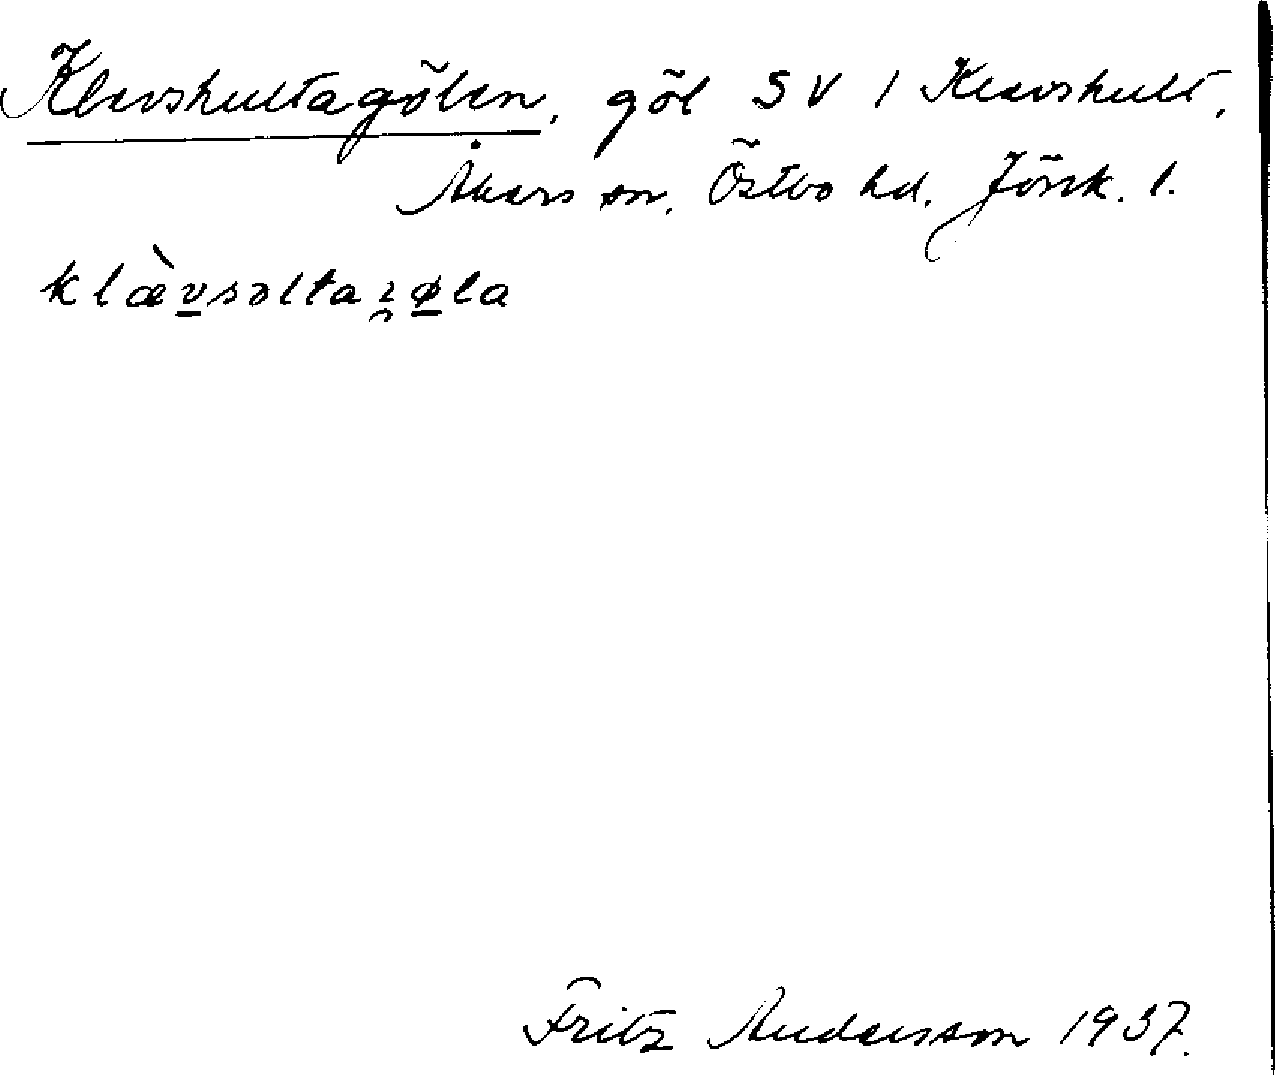 Klevshultagölen, göl SV i Klevshult,
Åkers sn. Östbo hd. Jönk. l.
klæ̀v̲səltaʓø̲la
Fritz Andersson 1937.